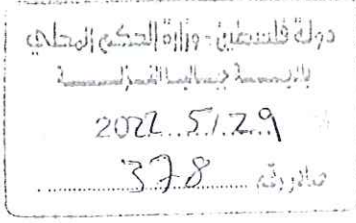 دولة فلسطين - وزارة الحكم المحلي
2022 5/29
صادر رقم 378